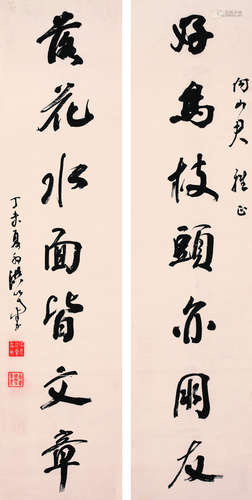 君 雅正
好鳥枝頭亦朋友
落花水面皆文章
丁未夏